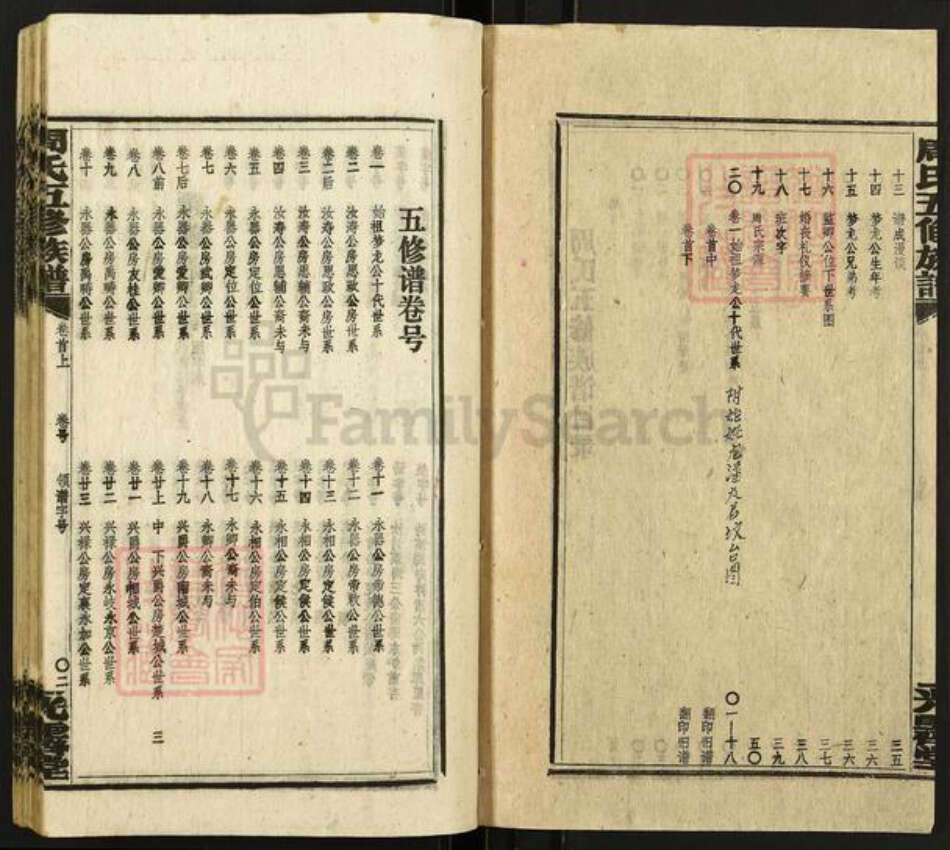 周氏五修族譜
十三 谱成漫谈 三五
十四 梦龙公生年考 三六
十五 梦龙公兄弟考 三六
十六 监卿公位下世系图 三七
十七 婚丧礼仪 三八
十八 班次字 三九
十九 周氏宗源 五〇
二〇 卷一始祖梦龙公十代世系 〇一—十八
卷首中 翻印旧谱
卷首下 翻印旧谱
五修谱卷号
卷一 始祖梦龙公十代世系
卷二 汝涛公房思敬公房世系
卷二后 汝涛公房思敬公房世系
卷三 汝涛公房思辅公裔未与
卷四 汝涛公房思辅公裔未与
卷五 永器公房定位公世系
卷六 永器公房定位公世系
卷七 永器公房斌卿公世系
卷七后 永器公房爱卿公世系
卷八前 永器公房爱卿公世系
卷八 永器公房友桂公世系
卷九 永器公房禹畴公世系
卷十 永器公房禹畴公世系
卷十一 永器公房帝德公世系
卷十二 永器公房帝敕公世系
卷十三 永相公房定侯公世系
卷十四 永相公房定侯公世系
卷十五 永相公房定侯公世系
卷十六 永相公房定伯公世系
卷十七 永卿公裔未与
卷十八 永卿公裔未与
卷十九 兴爵公房南城公世系
卷廿上 中 下兴爵公房楚城公世系 三
卷廿一 兴爵公房相城公世系
卷廿二 兴禄公房永岐永京公世系
卷廿三 兴禄公房定襄永加公世系
周氏五修族譜
卷首上
卷号 领谱字号
〇二
FamilySearch